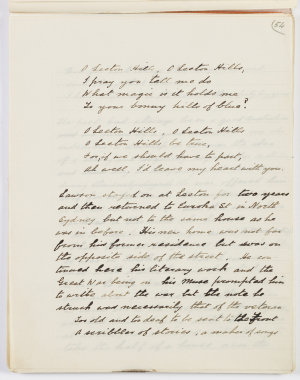 54
O Leeton Hills, O Leeton Hills,
I pray you tell me do
What magic is it holds me
To your bonny hills of blue?
O Leeton Hills, O Leeton Hills
O Leeton Hills be true,
For, if we should have to part,
Ah well, I'd leave my heart with you.
Lawson stayed on at Leeton for two years
and then returned to Euroka St in North
Sydney but not to the same house as he
was in before. His new home was not far
from his former residence but was on
the opposite side of the street. He con
tinued here his literary work and the
Great War being on his Muse prompted him
to write about the war but the note he
struck was necessarily that of the veteran
Too old and too deaf to be sent to the front
A scribbler of stories, a maker of songs